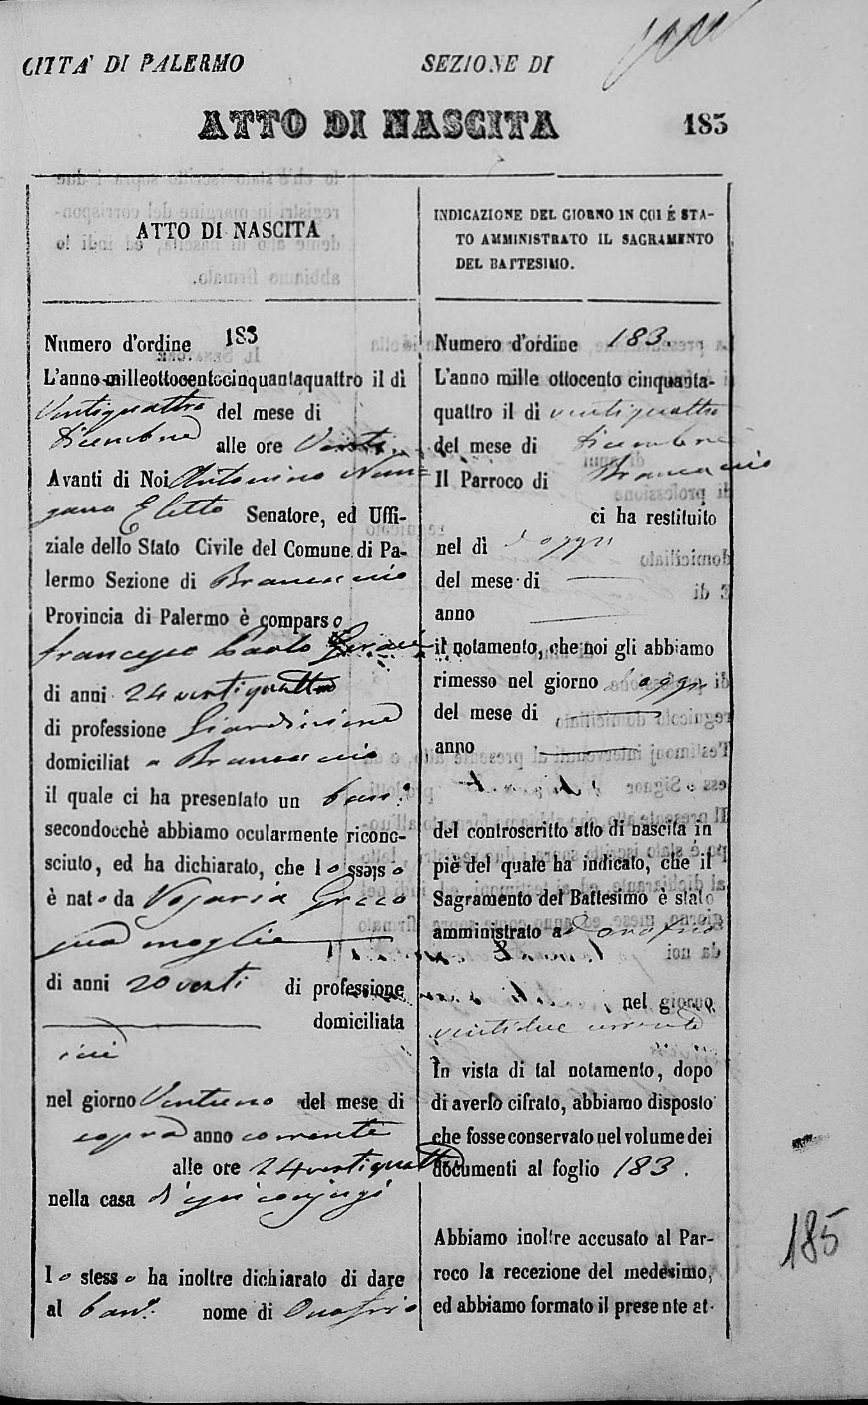 CITTA' DI PALERMO SEZIONE DI
ATTO DI NASCITA 185
ATTO DI NASCITA
Numero d'ordine 183
L'anno milleottocentocinquantaquattro il dì
Ventiquattro del mese di
Dicembre alle ore Venti
Avanti di Noi Antonino
Eletto Senatore, ed Uffi-
ziale dello Stato Civile del Comune di Pa-
lermo Sezione di Brancaccio
Provincia di Palermo è comparso
Francesco Paolo
di anni 24 ventiquattro
di professione Giardiniere
domiciliato a Brancaccio
il quale ci ha presentato un bam:
secondocchè abbiamo ocularmente ricono-
sciuto, ed ha dichiarato, che lo stesso
è nato da Rosaria Greco
sua moglie
di anni 20 venti di professione
domiciliata
ivi
nel giorno Ventuno del mese di
sopra anno corrente
alle ore 24 ventiquattro
nella casa di essi conjugi
Lo stesso ha inoltre dichiarato di dare
al bam: nome di Onofrio
INDICAZIONE DEL GIORNO IN CUI É STA-
TO AMMINISTRATO IL SAGRAMENTO
DEL BATTESIMO.
Numero d'ordine 183.
L'anno mille ottocento cinquanta-
quattro il dì ventiquattro
del mese di Dicembre
Il Parroco di Brancaccio
ci ha restituito
nel dì d'oggi
del mese di
anno
il notamento, che noi gli abbiamo
rimesso nel giorno d'oggi
del mese di
anno
del controscritto atto di nascita in
piè del quale ha indicato, che il
Sagramento del Battesimo è stato
amministrato ad Onofrio
nel giorno
ventidue corrente
In vista di tal notamento, dopo
di averlo cifrato, abbiamo disposto
che fosse conservato nel volume dei
documenti al foglio 183.
Abbiamo inoltre accusato al Par-
roco la recezione del medesimo,
ed abbiamo formato il presente at-
185